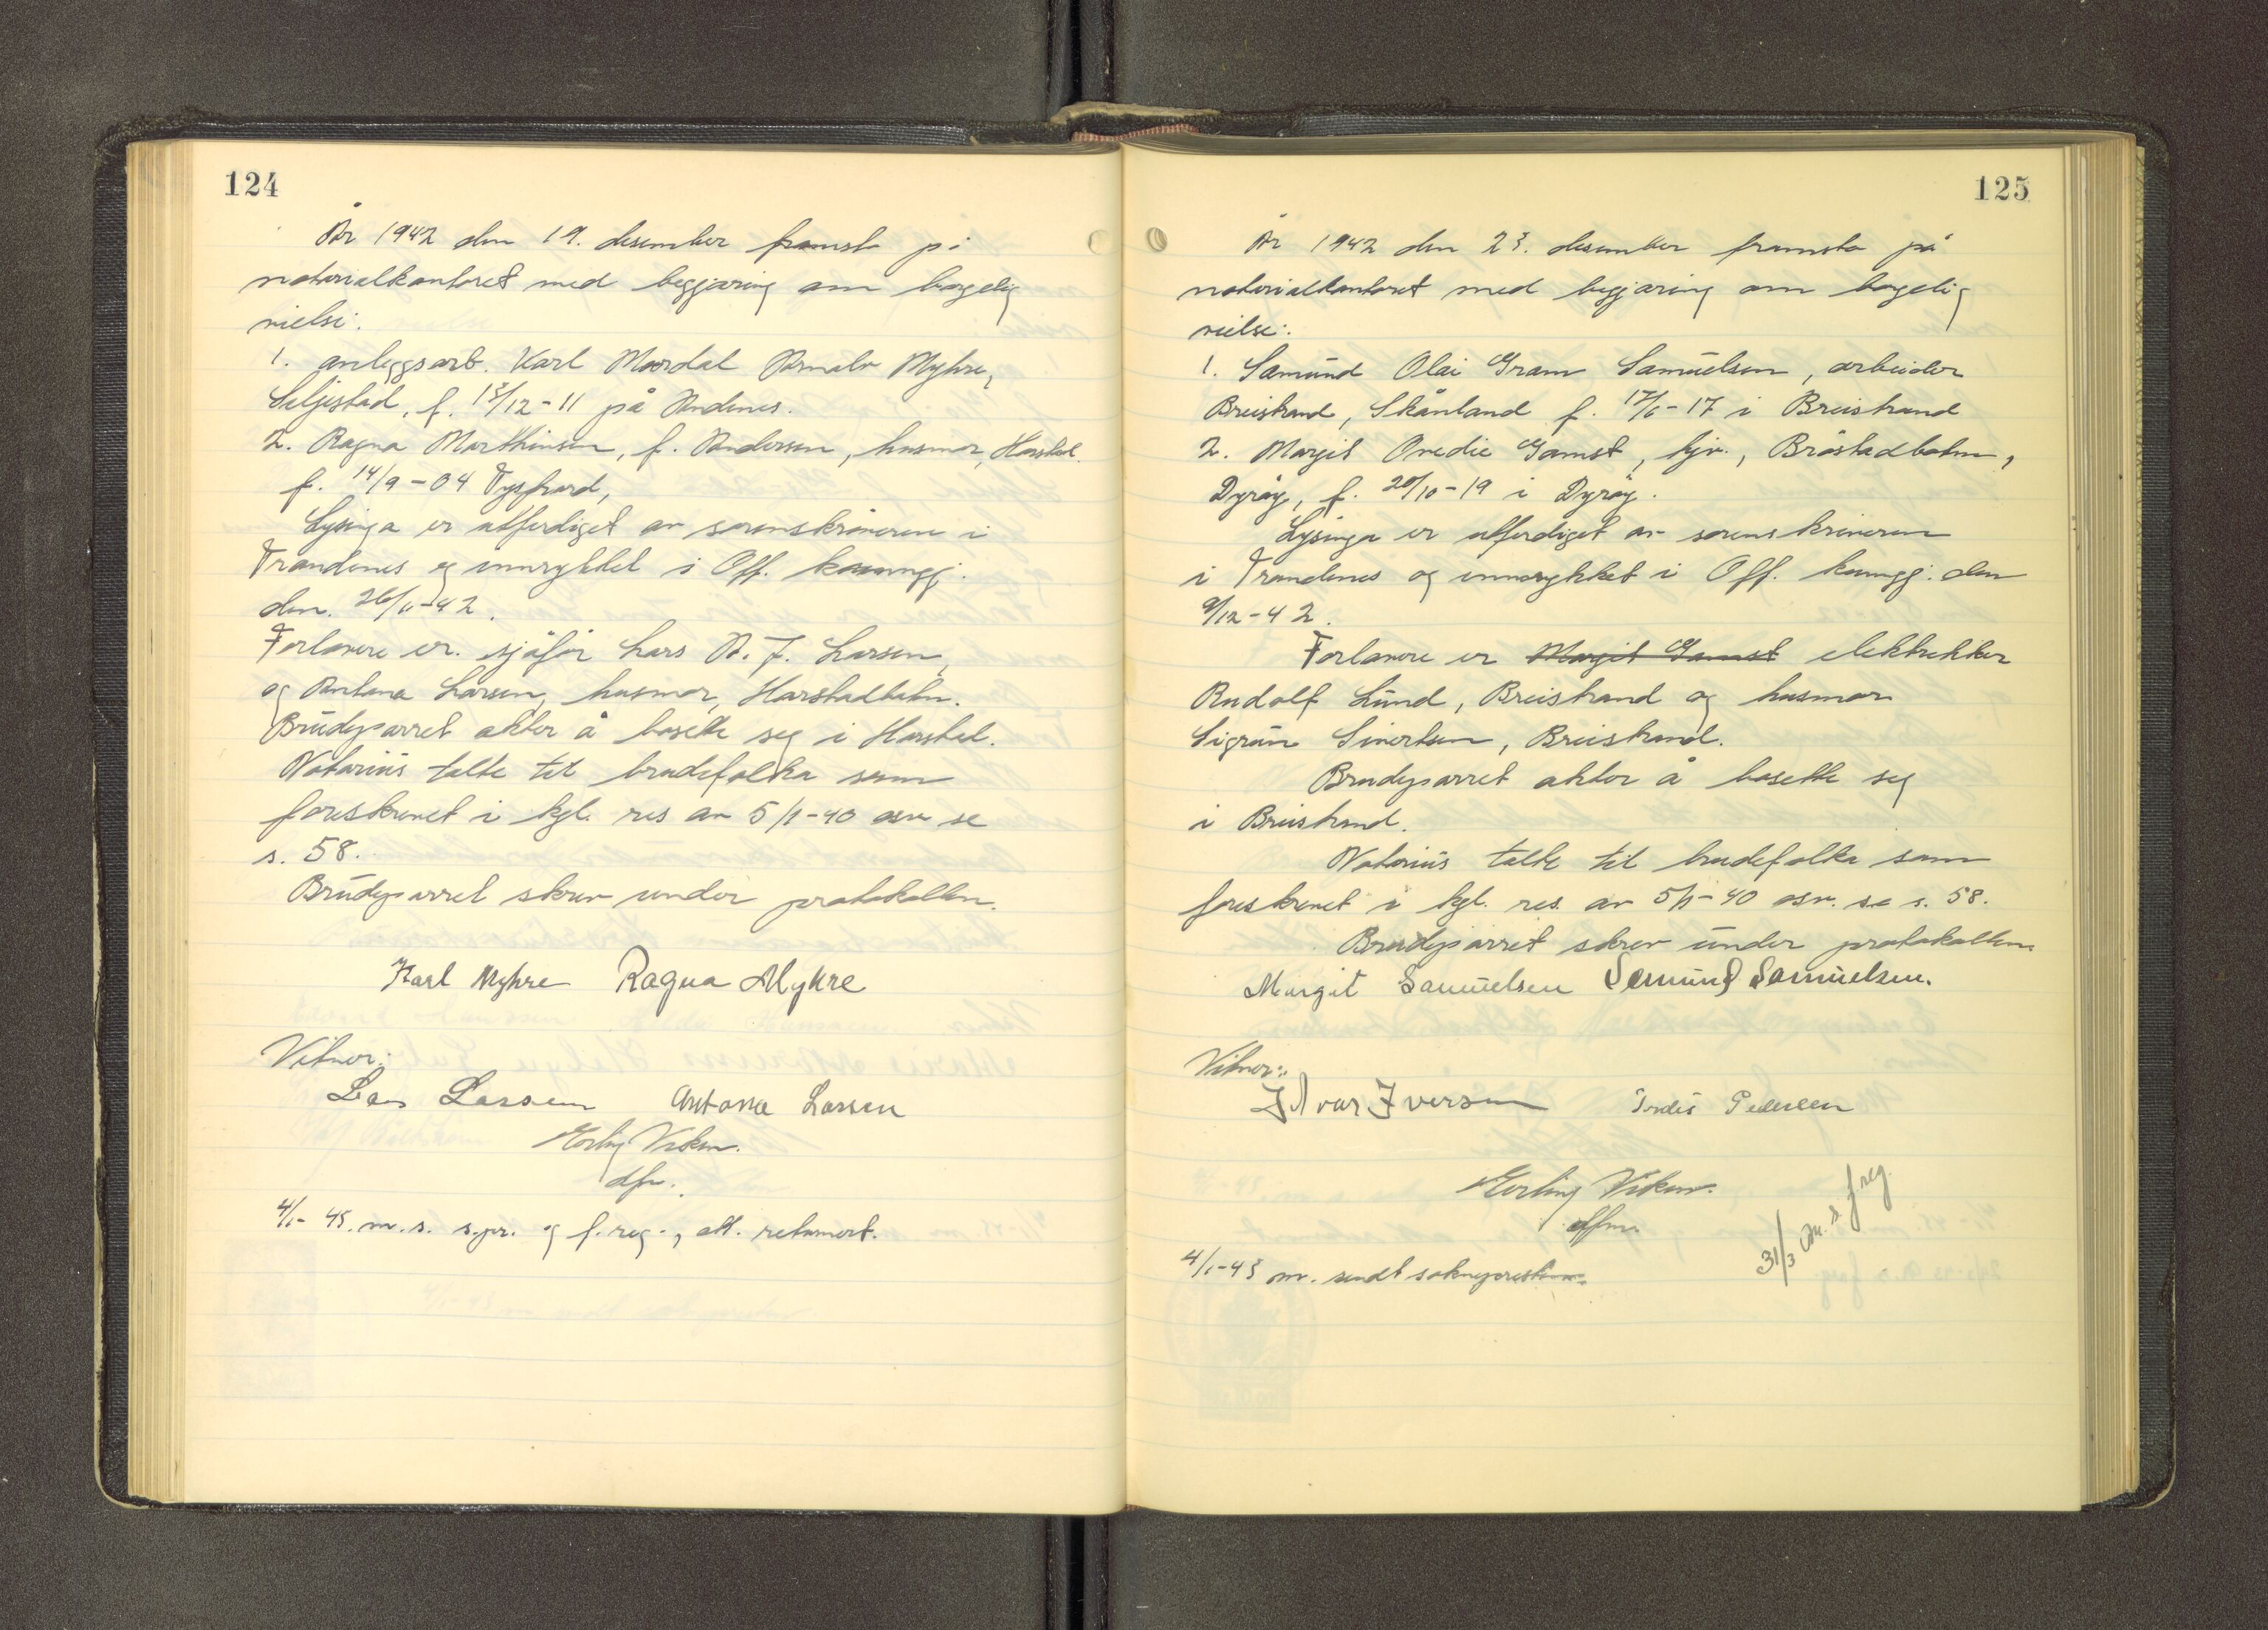 124
År 1942 den 19. desember framsto på
notarialkontoret med begjæring om borgelig
vielse:
1. anleggsarb. Karl Mordal Arnulv Myhre,
Seljestad, f. 13/12-11 på Andenes.
2. Ragna Marthinsen, f. Andersen, husmor, Harstad.
f. 14/9-04 Tysfjord,
Lysinga er utferdiget av sorenskriveren i
Trondenes og innrykket i Off. kunngj.
den. 26/11-42.
Forlovere er. sjåfør Lars A. J. Larsen,
og Antona Larsen, husmor, Harstadbotn.
Brudeparret akter å bosette seg i Harstad.
Notarius talte til brudefolka som
foreskrevet i kgl. res av 5/1-40 osv se
s. 58.
Brudeparret skrev under protokollen.
Karl Myhre Ragna Myhre
Vitner:
Lars Larsen Antona Larsen
Erling Viken.
dfm.
4/1-43. m. s. s.pr. og f. reg., att. returnert.
125
År 1942 den 23. desember framsto på
notarialkontoret med begjæring om borgelig
vielse:
1. Samund Olai Gram Samuelsen, arbeider
Breistrand, Skånland f. 17/6-17 i Breistrand
2. Margit Ovedie Gamst, hjv., Brøstadbotn,
Dyrøy, f. 20/10-19 i Dyrøy.
Lysinga er utferdiget av sorenskriveren
i Trondenes og innrykket i Off. kunngj. den
9/12-42.
Forlovere er Margit Gamst elektriker
Rudolf Lund, Breistrand og husmor
Sigrun Sivertsen, Breistrand.
Brudeparret akter å bosette seg
i Breistrand.
Notarius talte til brudefolka som
foreskrevet i kgl. res. av 5/1-40 osv. se s. 58.
Brudeparret skrev under protokollen
Margit Samuelsen Samund Samuelsen.
Vitner:
Ivar Iversen Tordis Pedersen
Erling Viken.
dfm.
31/3 m. s. f reg.
4/1-43 m. sendt soknepresten.